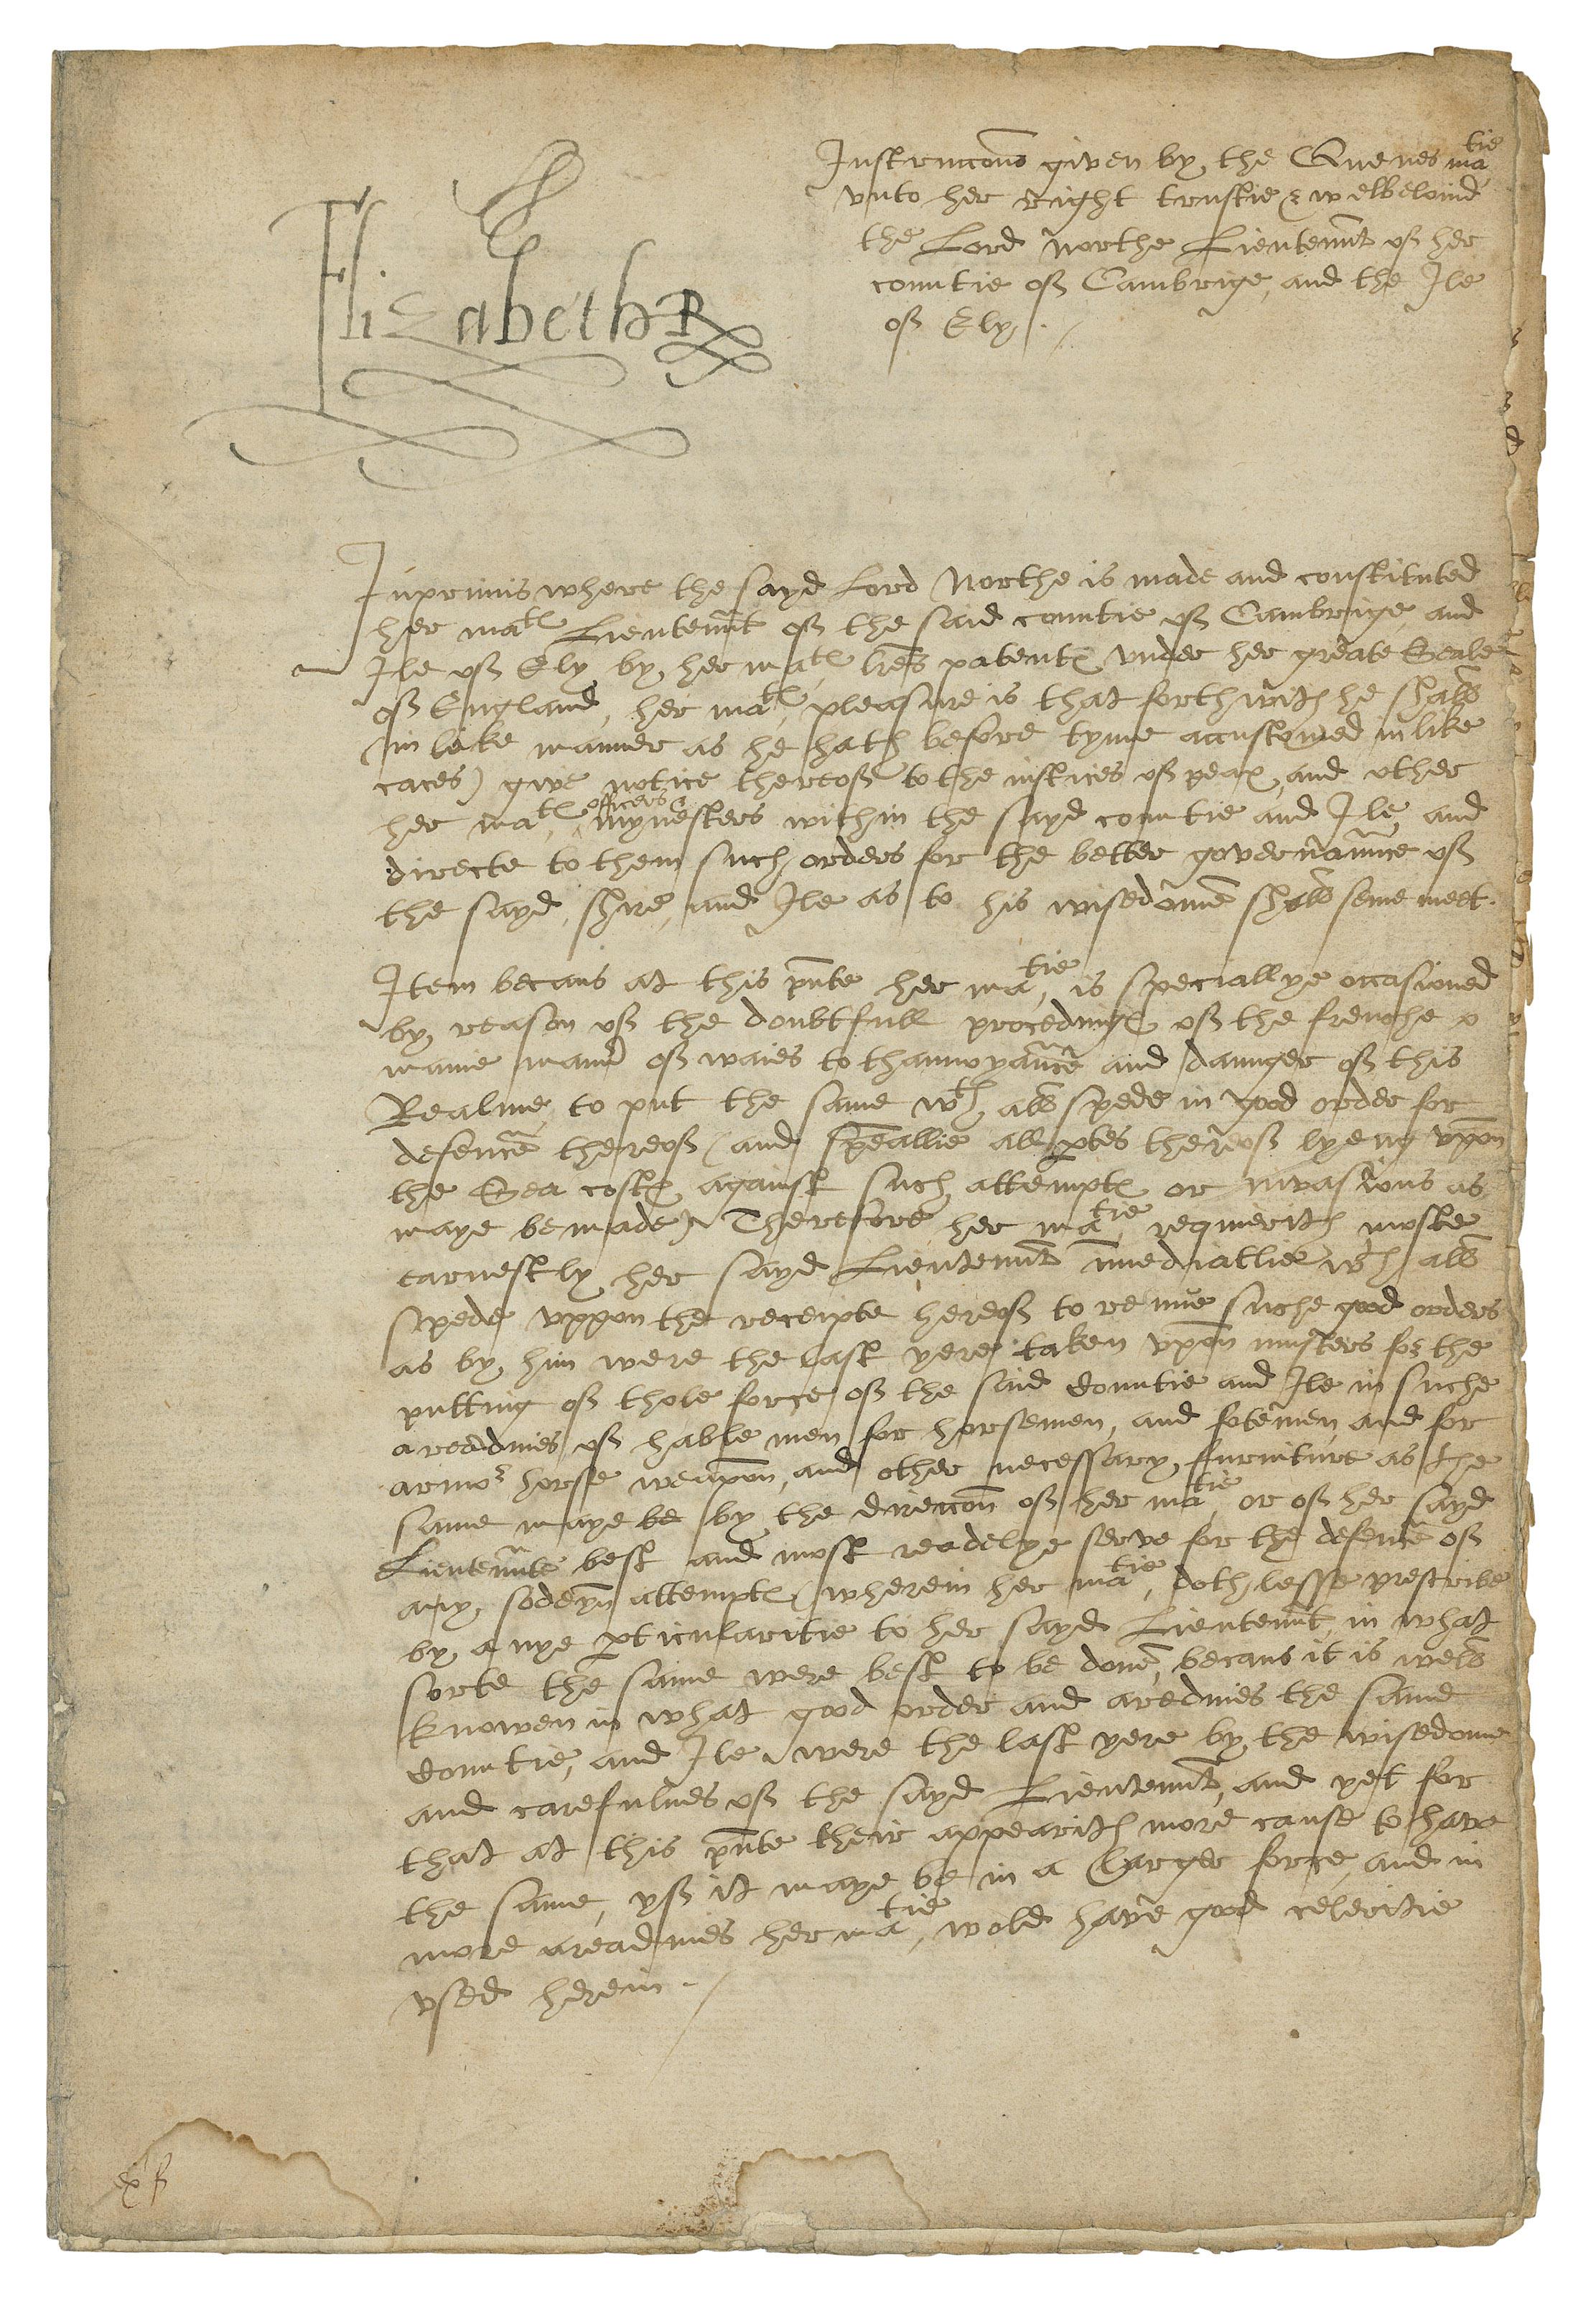 Elizabeth R
Instruccons given by the Quenes matie
vnto her Right trustie & welbeloued
the Lord Northe Lieutennt of her
countie of Cambrige, and the Ile
of Ely.
Inprimis where the sayd Lord Northe is made and constituted
her mates Lieutennt of the said countie of Cambrige and
Ile of Ely by her mates lres patentes vnder her greate Seale
of England, her mates pleasure is that forthwith he shall
(in like manner as he hath before tyme accustomed in like
caces) give notice thereof to the iustices of peax, and other
her mates officers & mynesters within the sayd countie and Ile and
directe to them such orders for the better governaunce of
the sayd shire, and Ile as to his wisedome shall seme meet.
Item becaus at this pnte her matie is speciallye occasioned
by reason of the doubtfull procedinges of the frenche
manie maner of waies to thannoyaunce and daunger of this
Realme, to put the same wth all spede in good order for
defence thereof (and speallie all ptes thereof lyeng vpon
the Sea costes against such attemptes or invasions as
maye be made) Therefore her matie requierith moste
earnestly her sayd Lieutennt imediatlie wth all
spede vppon the receipte hereof to renue suche good orders
as by him were the last yere taken vpon musters for the
putting of thole force of the said Countie and Ile in suche
a readines of hable men for horsemen, and fotemen, and for
armor horse weapon, and other necessary furniture as the
same maye be by the direccon of her matie or of her sayd
Lieutennte best and most readelye serve for the defence of
any sodeyn attemptes (wherein her matie doth lesse prescribe
by anye pticularitie to her sayd Lieutennt, in what
sorte the same were best to be done, becaus it is well
knowen in what good order and aredines the same
Countie, and Ile were the last yere by the wisedome
and carefulnes of the sayd Lieutennt, and yet for
that at this pnte their appearith more cause to have
the same, yf it maye be in a larger force, and in
more areadines her matie, wold have good celeritie
vsed herein.